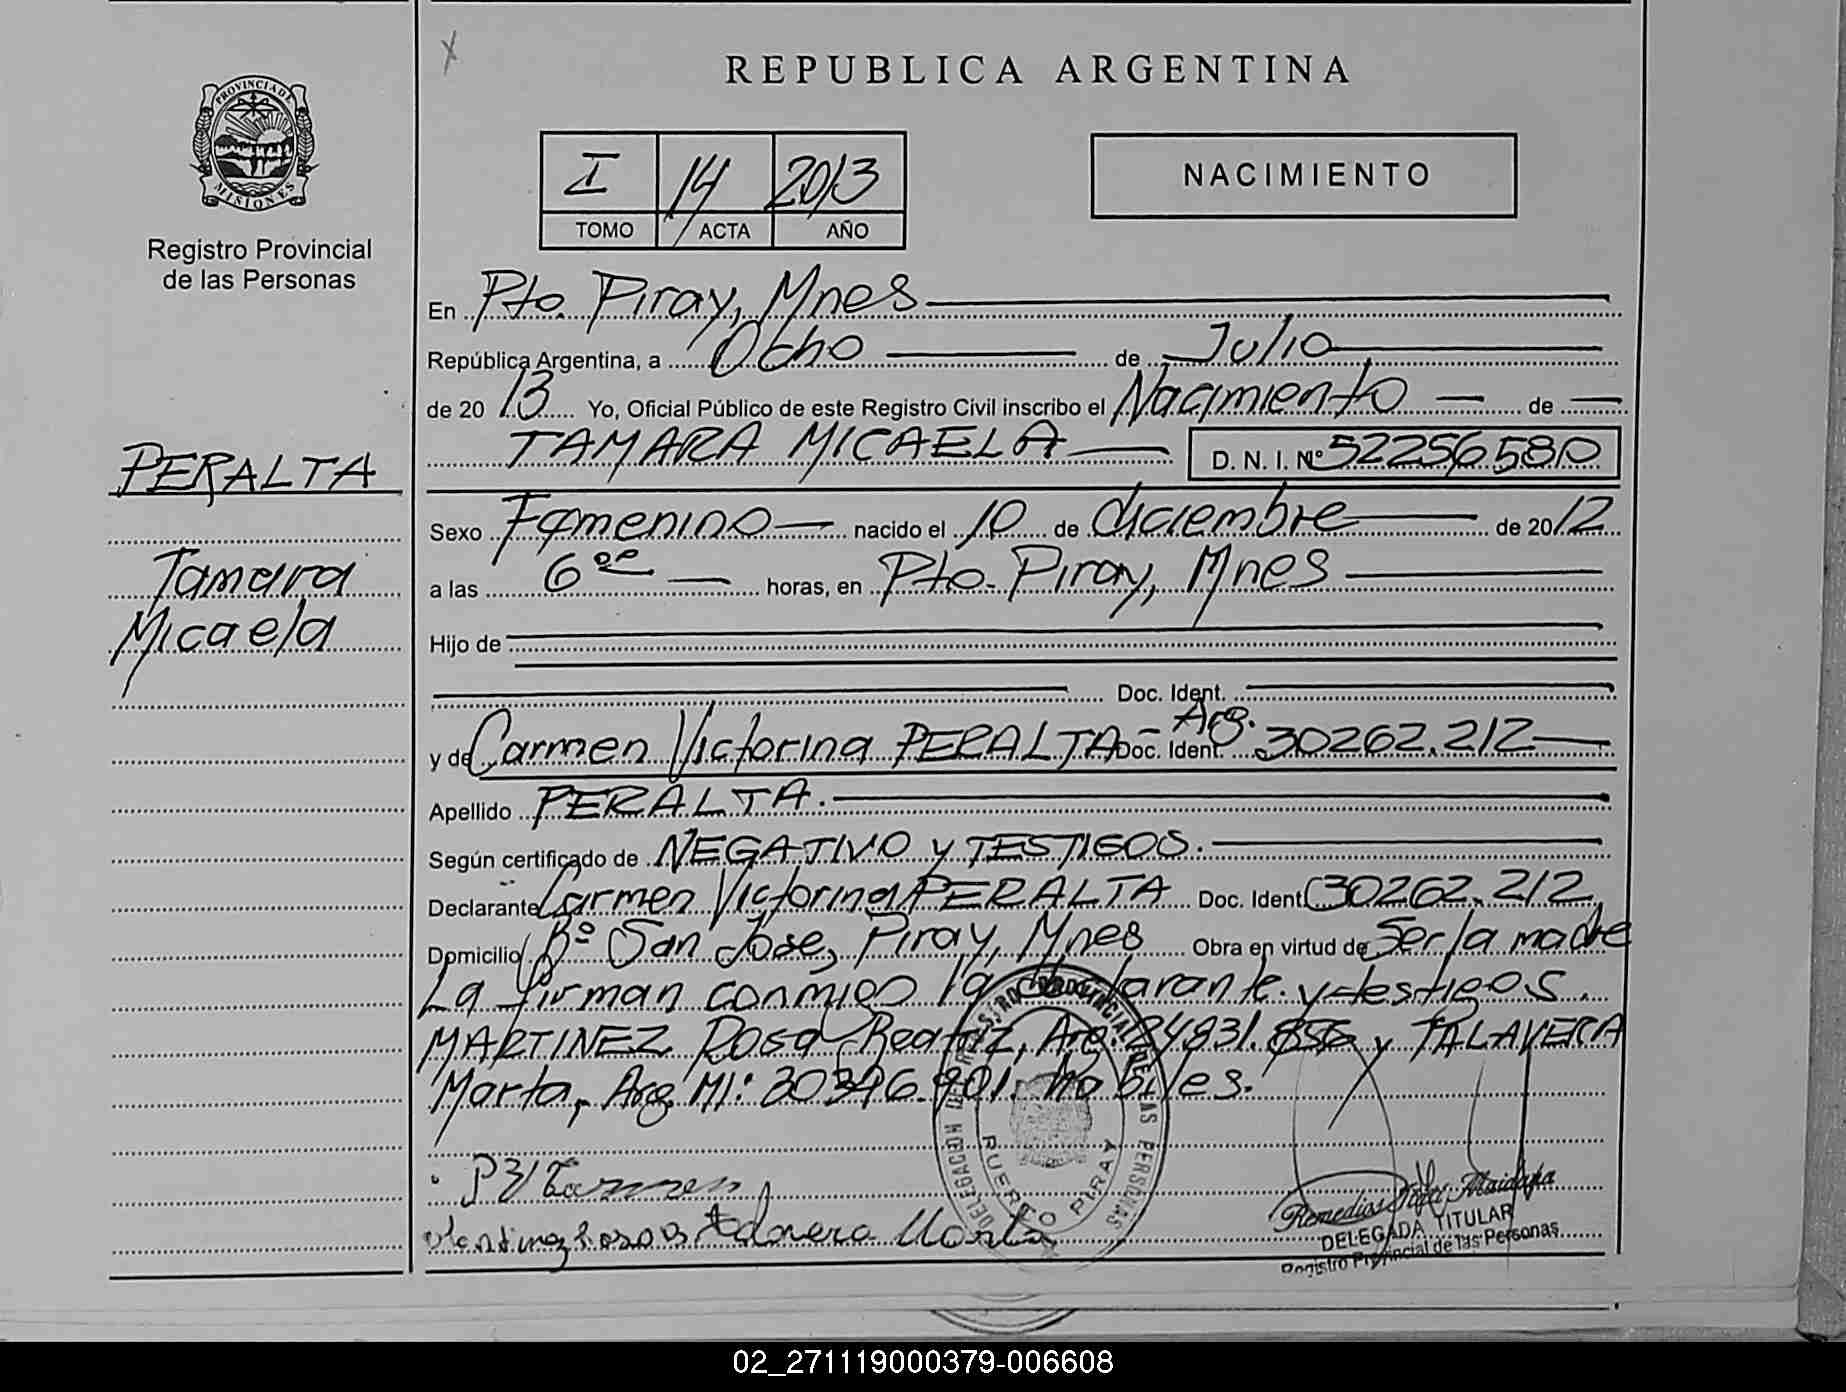 REPUBLICA ARGENTINA
PROVINCIA DE
MISIONES
Registro Provincial
de las Personas
I 14 2013
TOMO ACTA AÑO
NACIMIENTO
En Pto. Piray, Mnes
República Argentina, a Ocho de Julio
de 20 13 Yo, Oficial Público de este Registro Civil inscribo el Nacimiento de
TAMARA MICAELA D. N. I. Nº 52256580
PERALTA
Tamara
Micaela
Sexo Femenino nacido el 10 de diciembre de 20 12
a las 6 horas, en Pto. Piray, Mnes
Hijo de
Doc. Ident.
y de Carmen Victorina PERALTA - Arg. Doc. Ident. 30262.212
Apellido PERALTA.
Según certificado de NEGATIVO y TESTIGOS.
Declarante Carmen Victorina PERALTA Doc. Ident 30262.212
Domicilio Bº San José, Piray, Mnes Obra en virtud de Ser la madre
La firman conmigo la declarante y testigos.
MARTINEZ Rosa Beatriz, Arg. 24831.856 y TALAVERA
Marta, Arg. MI: 30396.901. hábiles.
DELEGACION DE REGISTRO PROVINCIAL DE LAS PERSONAS
PUERTO PIRAY
DELEGADA TITULAR
Registro Provincial de las Personas
02_271119000379-006608